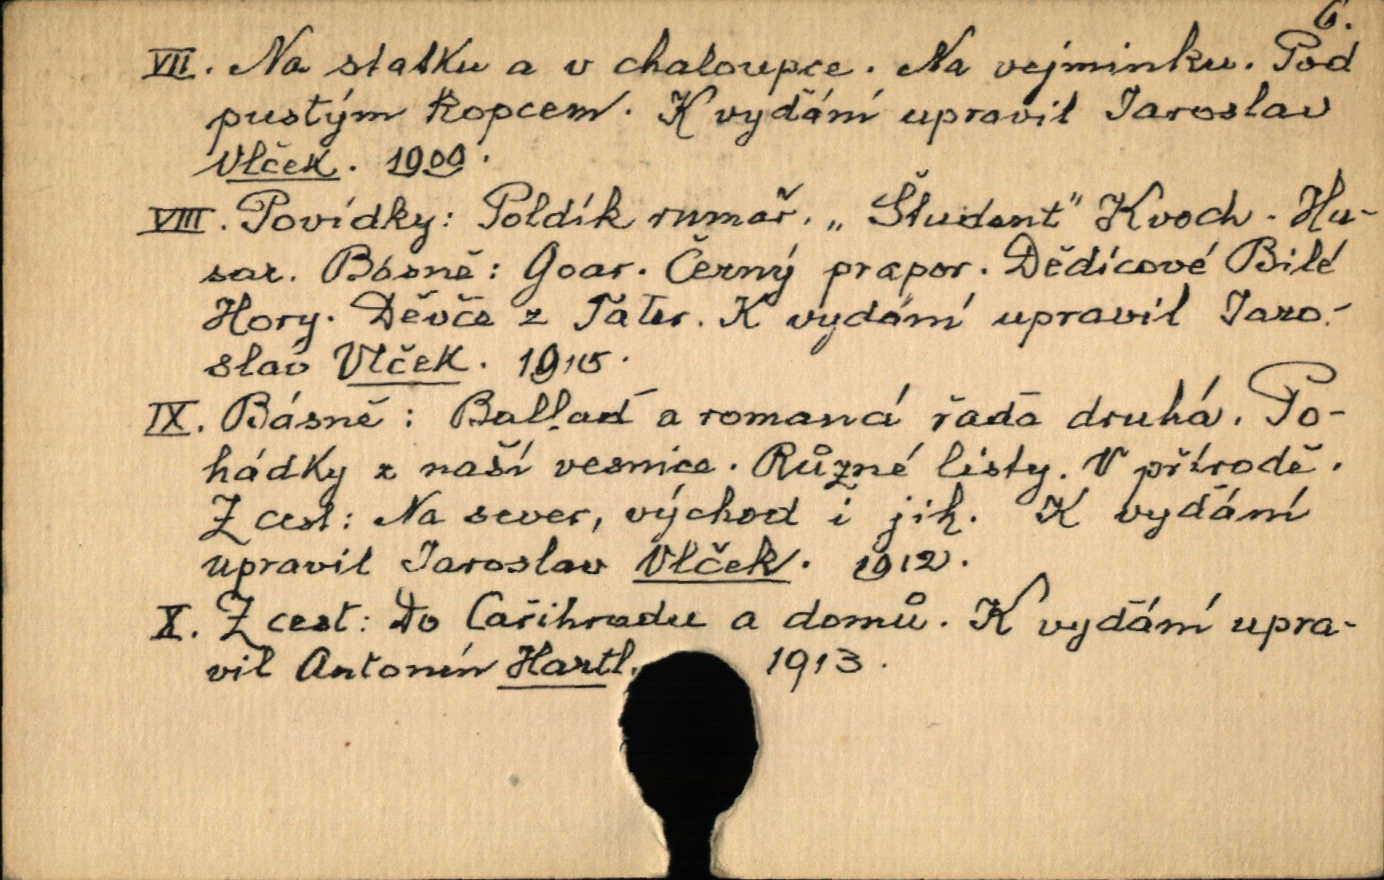 6.
VII. Na statku a v chaloupce. Na vejminku. Pod
pustým kopcem. K vydání upravil Jaroslav
Vlček. 1909.
VIII. Povídky: Poldík rumař. „Študent" Kvoch. Hu-
sar. Básně: Goar. Černý prapor. Dědicové Bílé
Hory. Děvče z Tater. K vydání upravil Jaro-
slav Vlček. 1915.
IX. Básně: Ballad a romancí řada druhá. Po-
hádky z naší vesnice. Různé listy. V přírodě.
Z cest: Na sever, východ i jih. K vydání
upravil Jaroslav Vlček. 1912.
X. Z cest: Do Cařihradu a domů. K vydání upra-
vil Antonín Hartl. 1913.